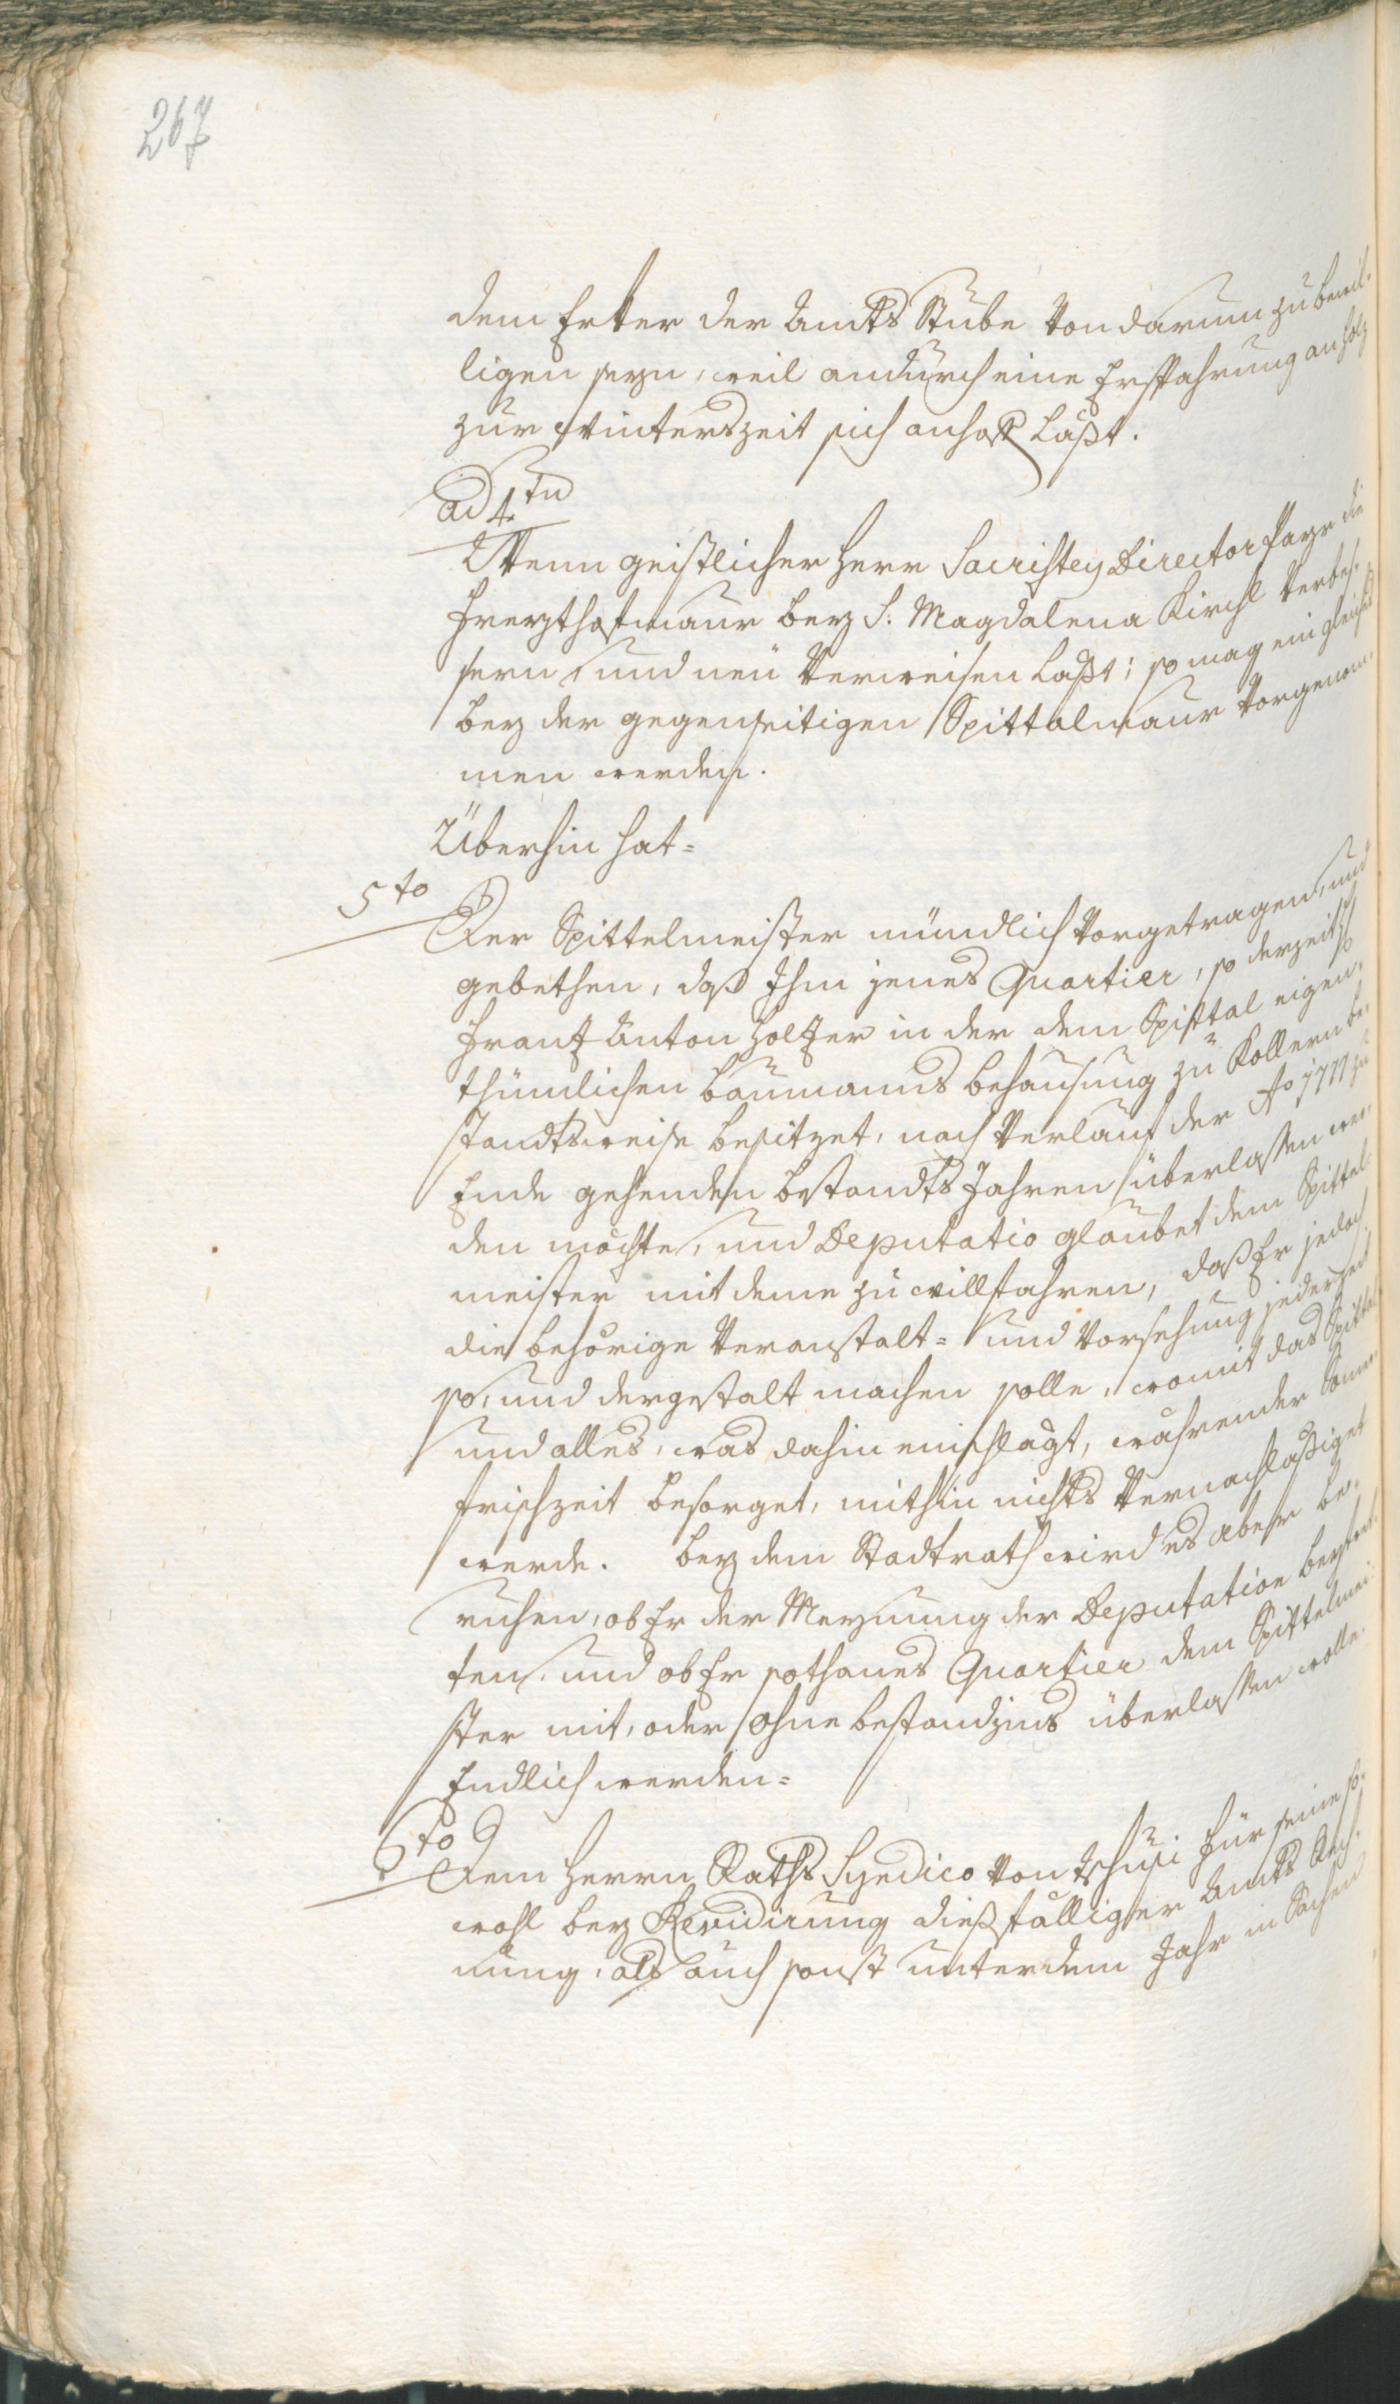 267
dem Erker der Amts Stube von darum zu bewil-
ligen seyn, weil andurch eine Erspahrung an Holz
zur Winterszeit sich anhoff laßt.
ad 4tu
Wenn geistlicher Herr Sacristey Director Payr die
Freythofmaur bey S: Magdalena Kirchl verbes-
sern, und neu verweisen laßt; so mag ein gleiches
bey der gegenseitigen Spittalmaur vorgenom-
men werden.
Überhin hat=
5to
Der Spittelmeister mündlich vorgetragen, und
gebethen, daß Ihm jenes Quartier, so derzeit
Franz Anton Holzer in der dem Spittal eigen-
thümlichen Baumanns behausung zu Kollern be-
standtsweise besitzet, nach verlauf der Ao 1777 zu
Ende gehenden bstandts Jahren überlassen wer-
den möchte, und Deputatio glaubet dem Spittel-
meister mit deme zu willfahren, daß Er jedoch
die behörige Veranstalt= und Vorsehung jederzeit
so, und dergestalt machen solle, womit das Spittal
und alles, was dahin einschlagt, währender Som̄er-
frischzeit besorget, mithin nichts vernachlaßiget
werde. bey dem Stadtrath wird es aber be-
ruhen, ob Er der Meynung der Deputation beytret-
ten, und ob Er sothanes Quartier dem Spittelmei-
ster mit, oder ohne bestandzins überlassen wolle.
Endlich werden=
6to
Dem Herrn Raths Syndico von Tschusi für seine so-
wohl bey Revidirung dießfälliger Amts Rech-
nung, als auch sonst unter dem Jahr in Sachen